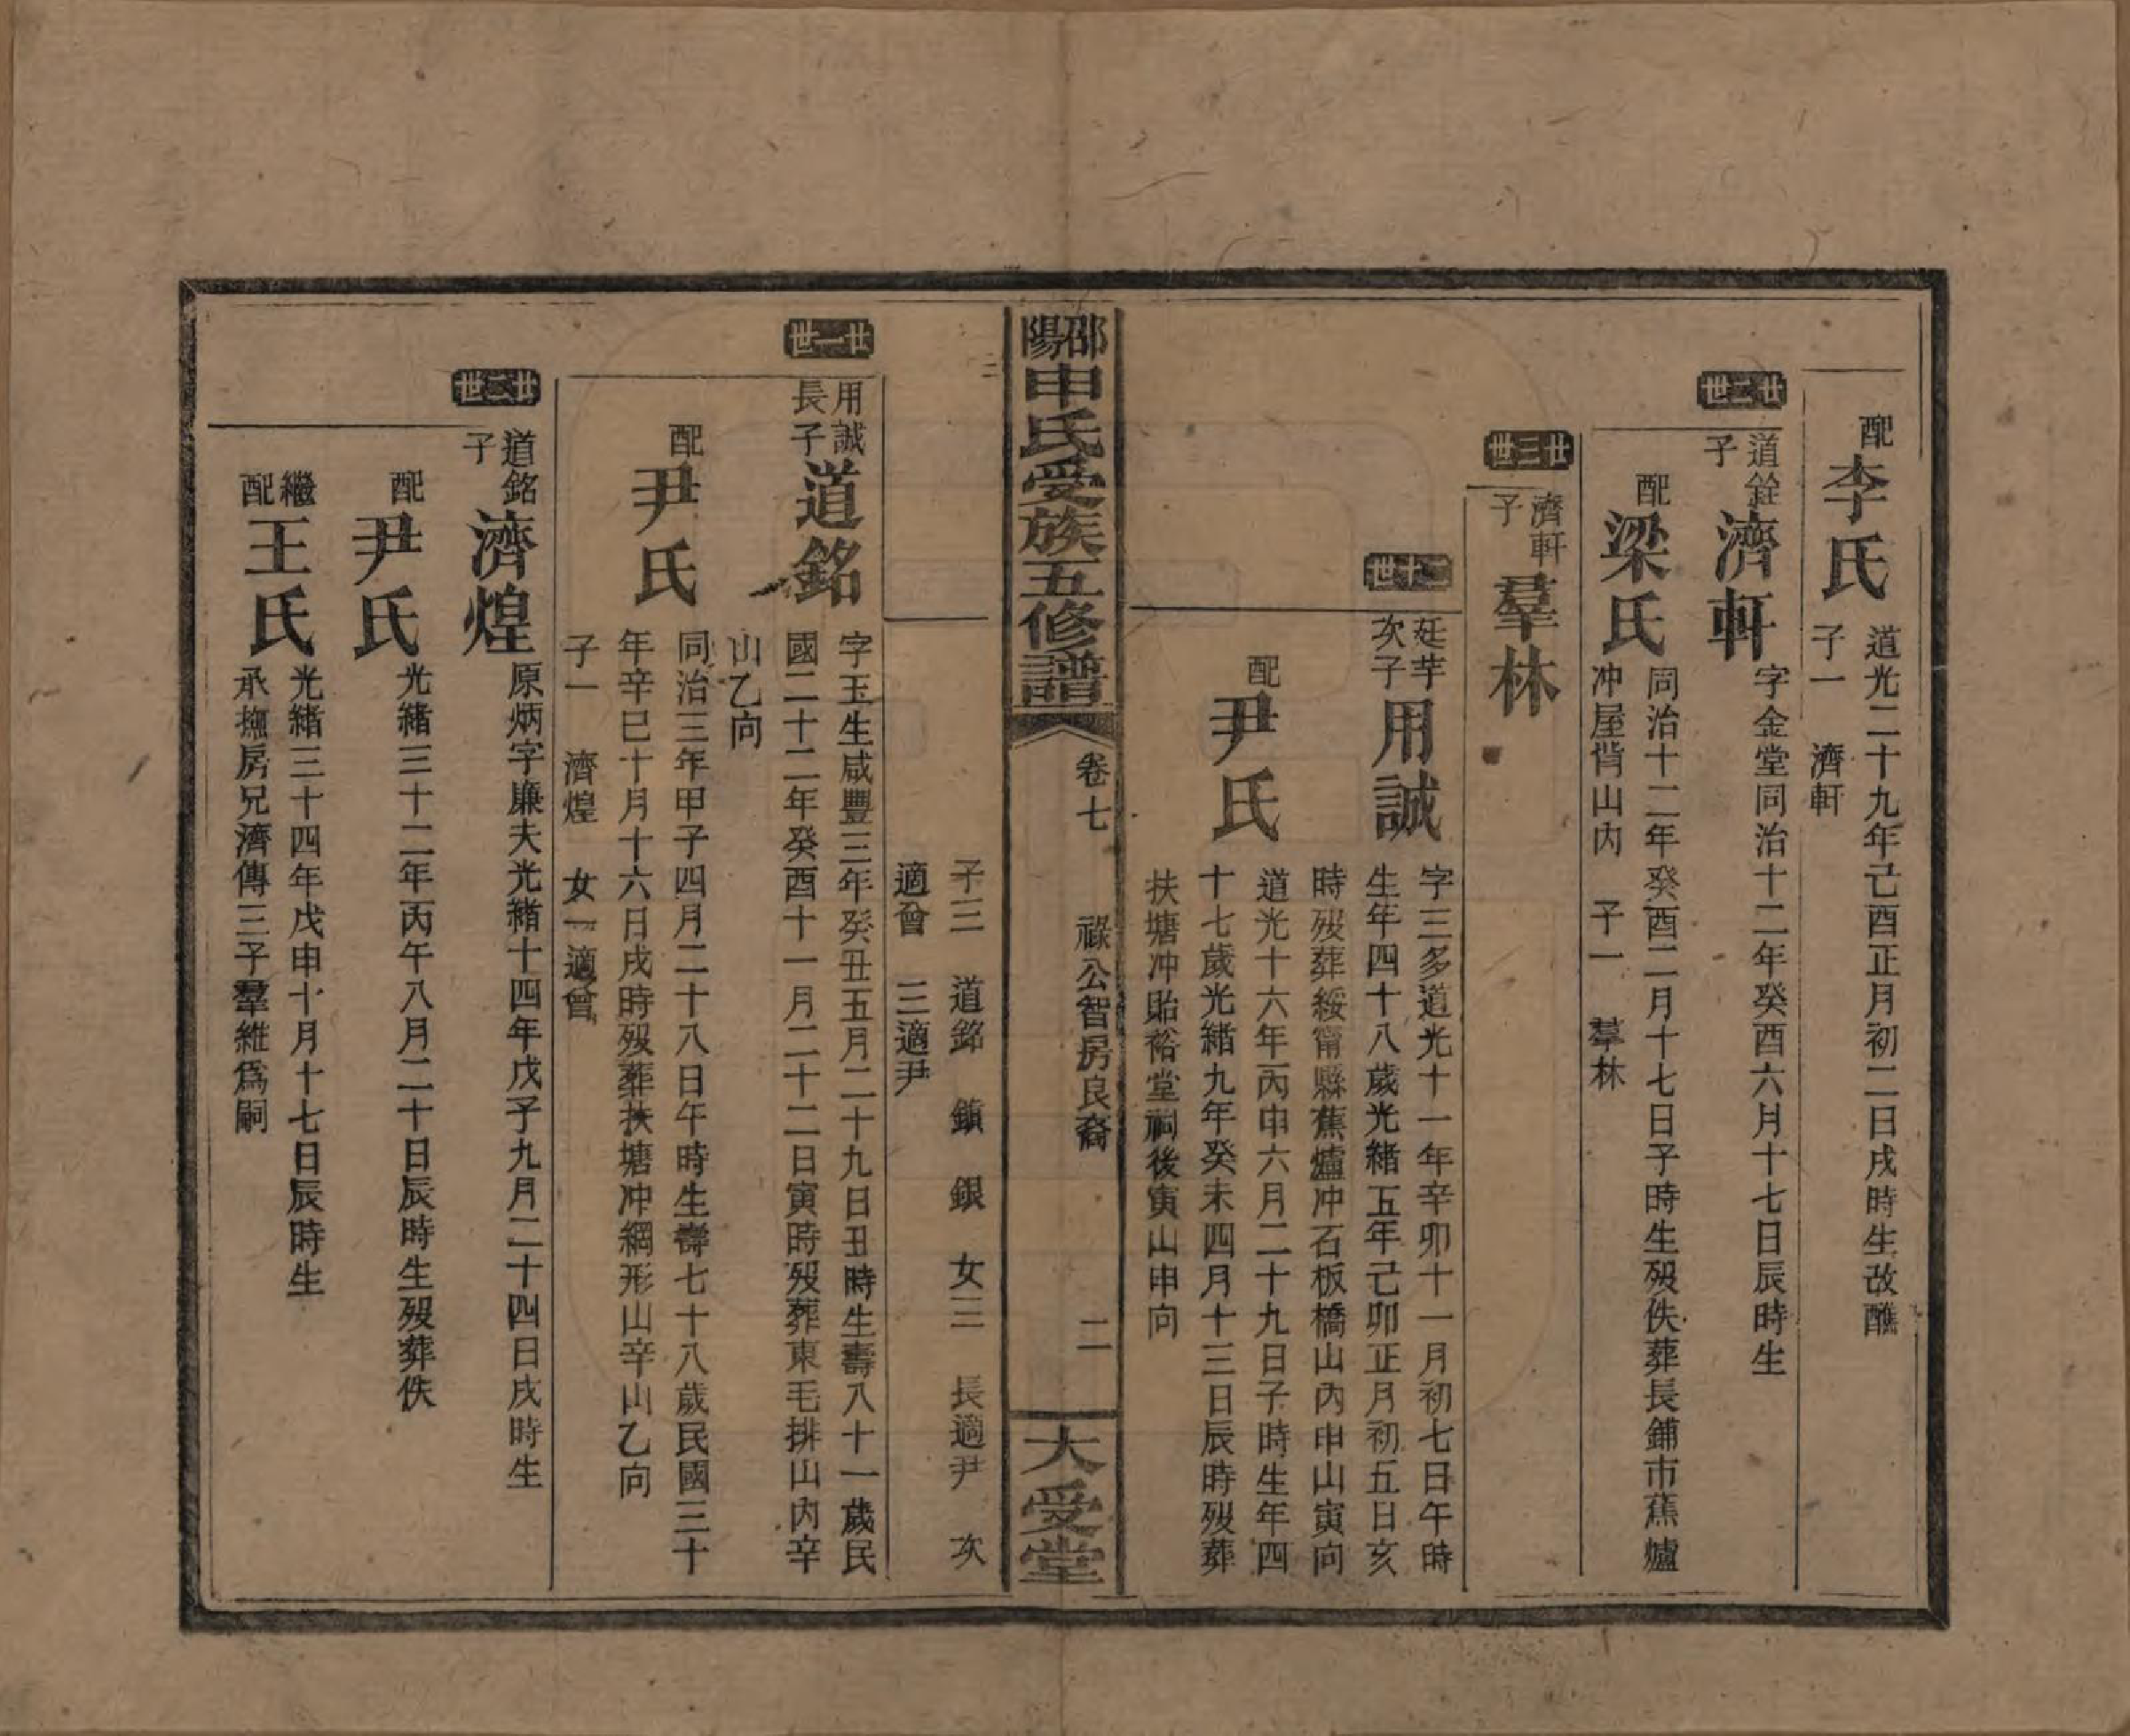 配李氏
道光二十九年己酉正月初二日戌時生改醮
子一　濟軒
廿二世
道銓子濟軒
字金堂同治十二年癸酉六月十七日辰時生
配梁氏
同治十二年癸酉二月十七日子時生歿佚葬長鋪市蕉爐
冲屋背山內　子一　羣林
廿三世
濟軒子羣林
二十世
廷芋次子用誠
字三多道光十一年辛卯十一月初七日午時
生年四十八歲光緒五年己卯正月初五日亥
時歿葬綏甯縣蕉爐冲石板橋山內申山寅向
配尹氏
道光十六年丙申六月二十九日子時生年四
十七歲光緒九年癸未四月十三日辰時歿葬
扶塘冲貽裕堂祠後寅山申向
邵陽申氏受族五修譜
卷七　祿公智房良裔　二
大受堂
子三　道銘　鎮　銀　女三　長適尹　次
適曾　三適尹
廿一世
用誠長子道銘
字玉生咸豐三年癸丑五月二十九日丑時生壽八十一歲民
國二十二年癸酉十一月二十二日寅時歿葬東毛排山內辛
山乙向
配尹氏
同治三年甲子四月二十八日午時生壽七十八歲民國三十
年辛巳十月十六日戌時歿葬扶塘冲綱形山辛山乙向
子一　濟煌　女一適曾
廿二世
道銘子濟煌
原炳字廉夫光緒十四年戊子九月二十四日戌時生
配尹氏
光緒三十二年丙午八月二十日辰時生歿葬佚
繼配王氏
光緒三十四年戊申十月十七日辰時生
承撫房兄濟傳三子羣維爲嗣